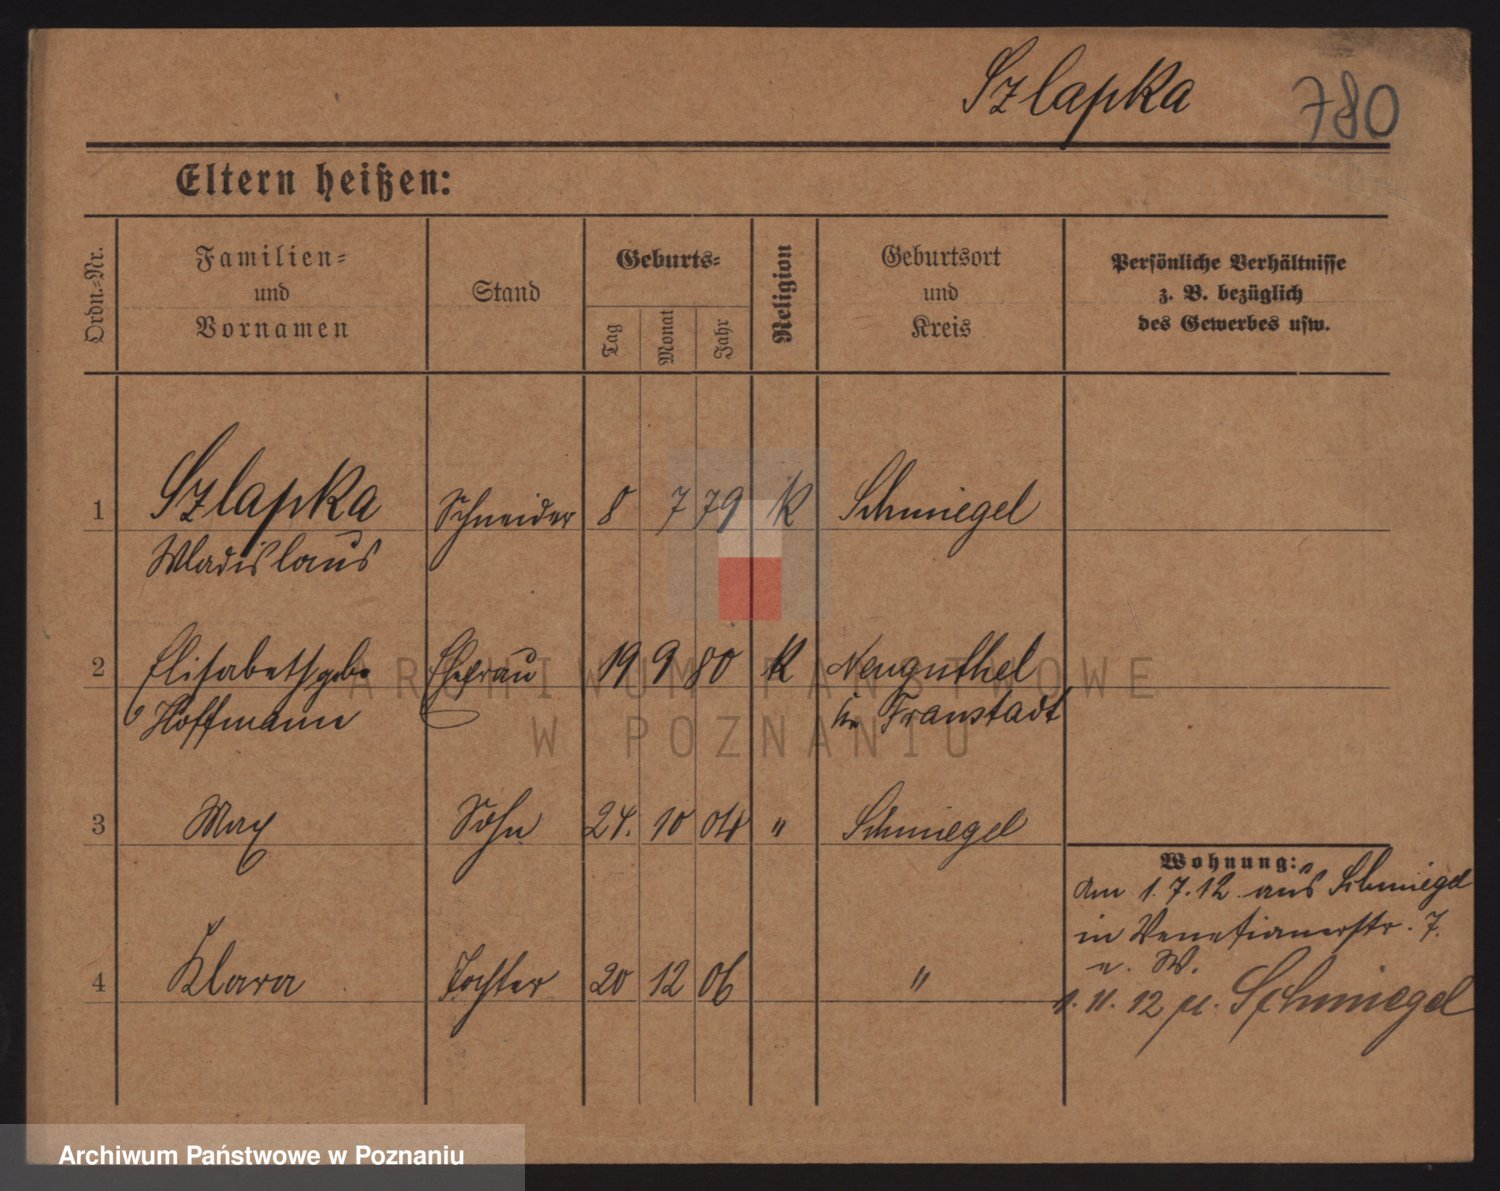 Szlapka 780
Eltern heißen:
Ordn.-Nr.
Familien-
und
Vornamen
Stand
Geburts-
Tag
Monat
Jahr
Religion
Geburtsort
und
Kreis
Persönliche Verhältnisse
z. B. bezüglich
des Gewerbes usw.
1 Szlapka Schneider 8 7 79 K Schmiegel
Wladislaus
2 Elisabeth geb. Ehefrau 19 9 80 K Neuguthel
Hoffmann in Fraustadt
3 Max Sohn 24. 10 04 " Schmiegel
Wohnung:
Am 1.7.12 aus Schmiegel
in Venetianerstr. 7.
4 Klara Tochter 20 12 06 "
1. 11. 12 Schmiegel
ARCHIWUM PAŃSTWOWE
W POZNANIU
Archiwum Państwowe w Poznaniu